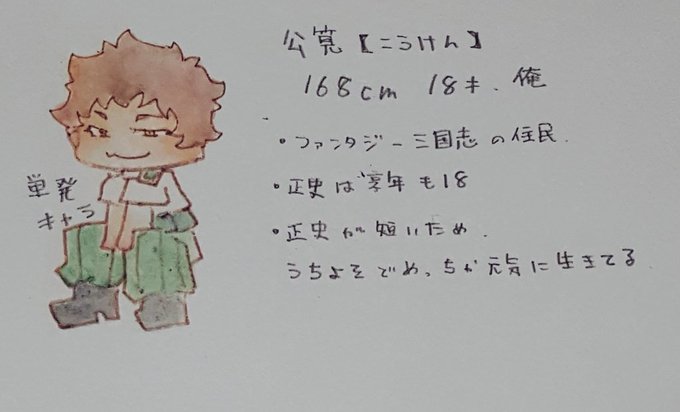 公覚【こうけん】
168cm 18才、俺
・ファンタジー三国志の住民.
・正史は享年も18
・正史が短いため、
うちよそでめっちゃ元気に生きてる
単発
キャラ